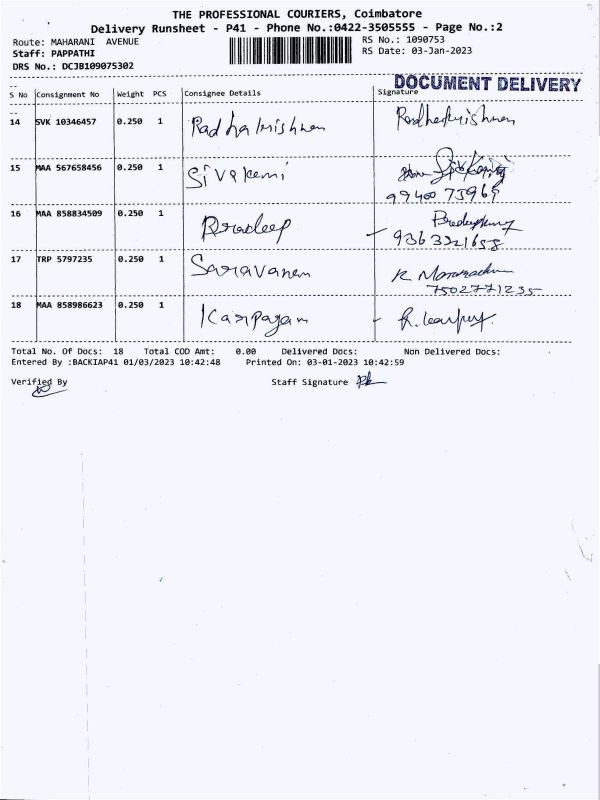 THE PROFESSIONAL COURIERS, Coimbatore
Delivery Runsheet - P41 - Phone No.:0422-3505555 - Page No.:2
Route: MAHARANI AVENUE RS No.: 1090753
Staff: PAPPATHI RS Date: 03-Jan-2023
DRS No.: DCJB109075302
DOCUMENT DELIVERY
S No Consignment No Weight PCS Consignee Details Signature
14 SVK 10346457 0.250 1 Radhakrishnan Radhakrishnan
15 MAA 567658456 0.250 1 Sivakami
99400 73969
16 MAA 858834509 0.250 1 Pradeep
9363221658
17 TRP 5797235 0.250 1 Saravanan
7502771235
18 MAA 858986623 0.250 1 Karpagam
Total No. Of Docs: 18 Total COD Amt: 0.00 Delivered Docs: Non Delivered Docs:
Entered By :BACKIAP41 01/03/2023 10:42:48 Printed On: 03-01-2023 10:42:59
Verified By Staff Signature